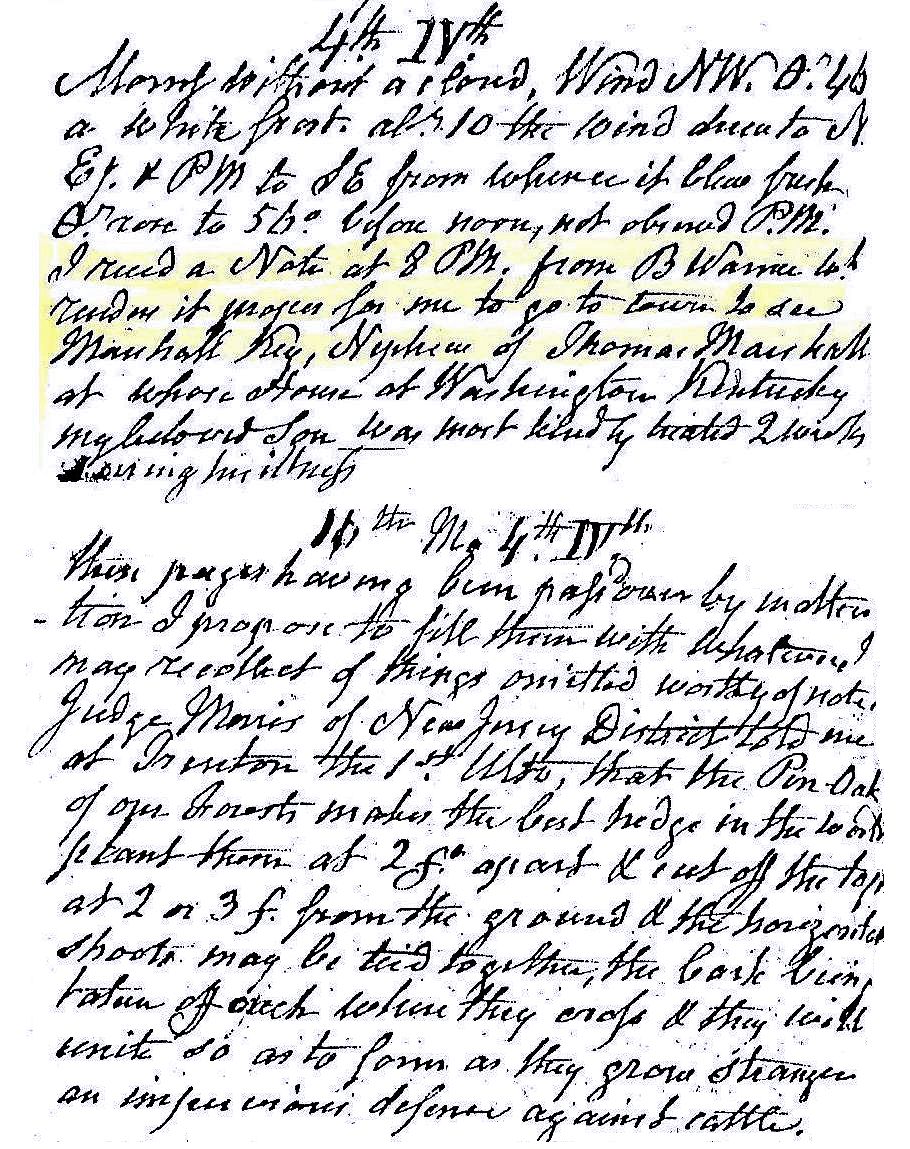 4th IVth
Morng without a cloud, Wind NW. Θr 46
a white frost. abt 10 the wind due to N
Ey. & PM to SE from whence it blew fresh
Θr rose to 56° before noon, not observd P.M.
I recd a Note at 8 PM. from B Warner wh
renders it proper for me to go to town to see
Marshall Key, Nephew of Thomas Marshall
at whose House at Washington Kentucky
my beloved Son was most kindly treated 2 weeks
during his illness
16th Mo 4th IVth
these pages having been pass'd over by inatten
-tion I propose to fill them with whatever I
may recollect of things omitted worthy of note.
Judge Morris of New Jersey District told me
at Trenton the 1st Ulto, that the Pin-Oak
of our Forests makes the best hedge in the world
plant them at 2 fo apart & cut off the tops
at 2 or 3 f. from the ground & the horizontal
shoots may be tied together, the bark being
taken off each where they cross & they will
unite so as to form as they grow stronger
an impervious defense against cattle.